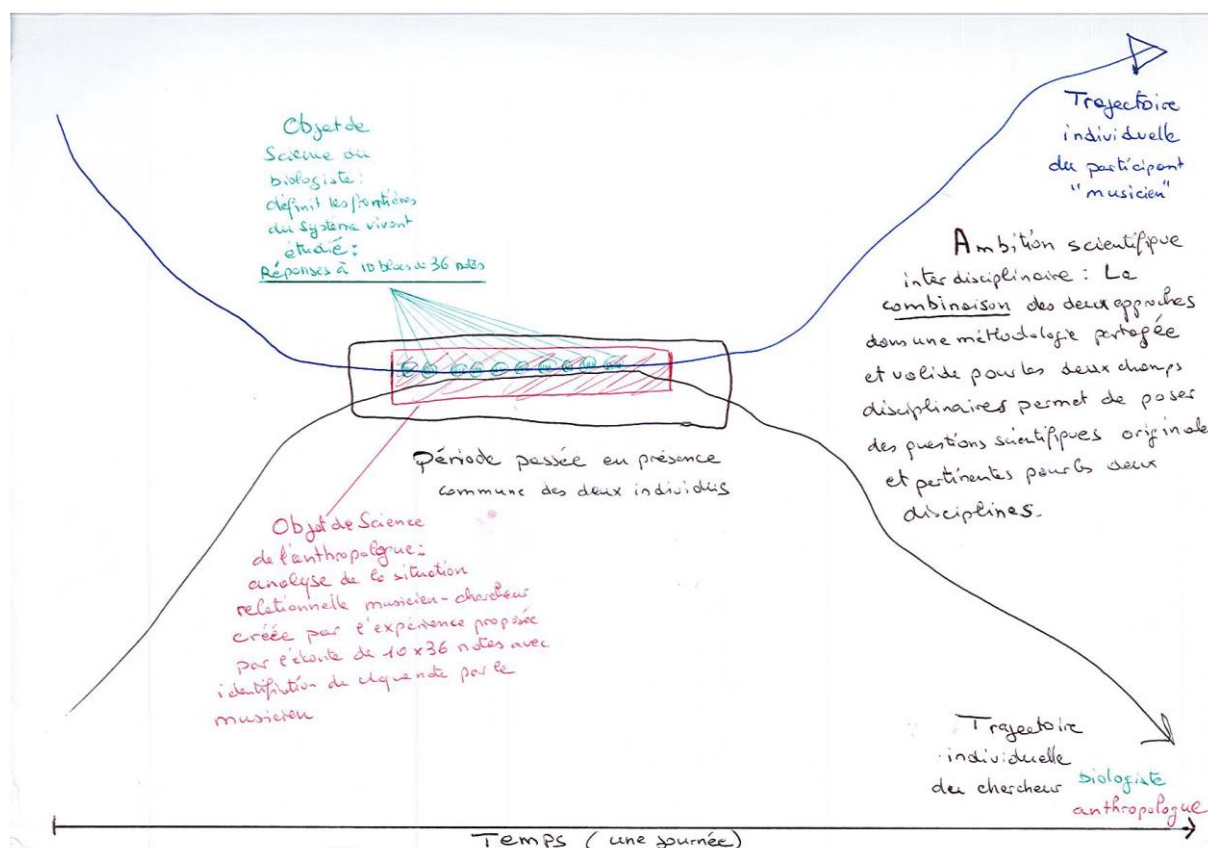 Objet de
Science du
biologiste :
définit les frontières
du système vivant
étudié :
Réponses à 10 blocs de 36 notes
Trajectoire
individuelle
du participant
"musicien"
Ambition scientifique
interdisciplinaire : La
combinaison des deux approches
dans une méthodologie partagée
et valide pour les deux champs
disciplinaires permet de poser
des questions scientifiques originales
et pertinentes pour les deux
disciplines.
Période passée en présence
commune des deux individus
Objet de Science
de l'anthropologue :
analyse de la situation
relationnelle musicien-chercheur
créée par l'expérience proposée
par l'écoute de 10 x 36 notes avec
identifiction de chaque note par le
musicien
Trajectoire
individuelle
du chercheur biologiste
anthropologue
Temps (une journée)